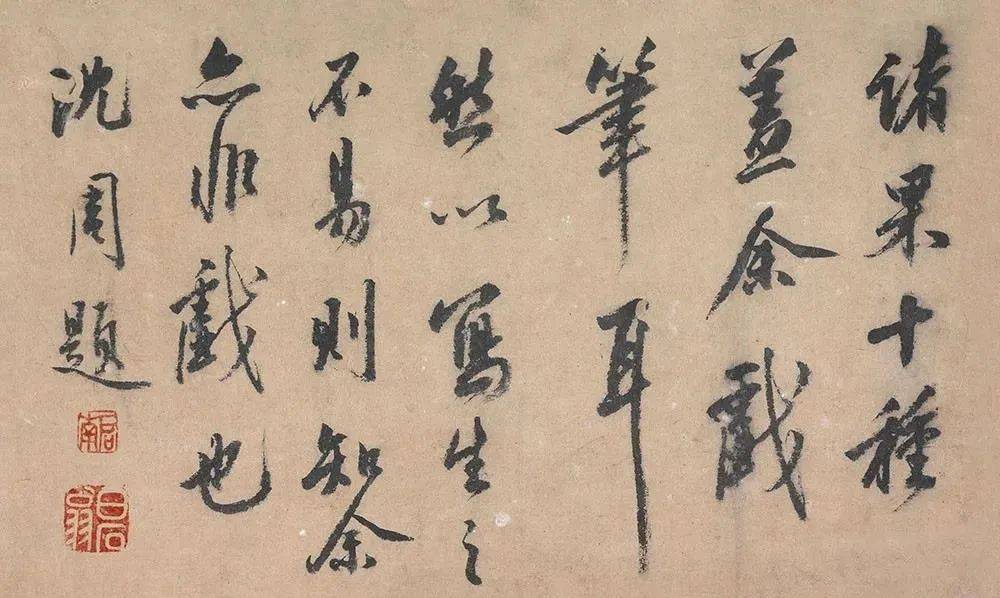 諸果十種
蓋余戲
筆耳
然以寫生之
不易則知余
亦非戲也
沈周題
啓南
白石翁